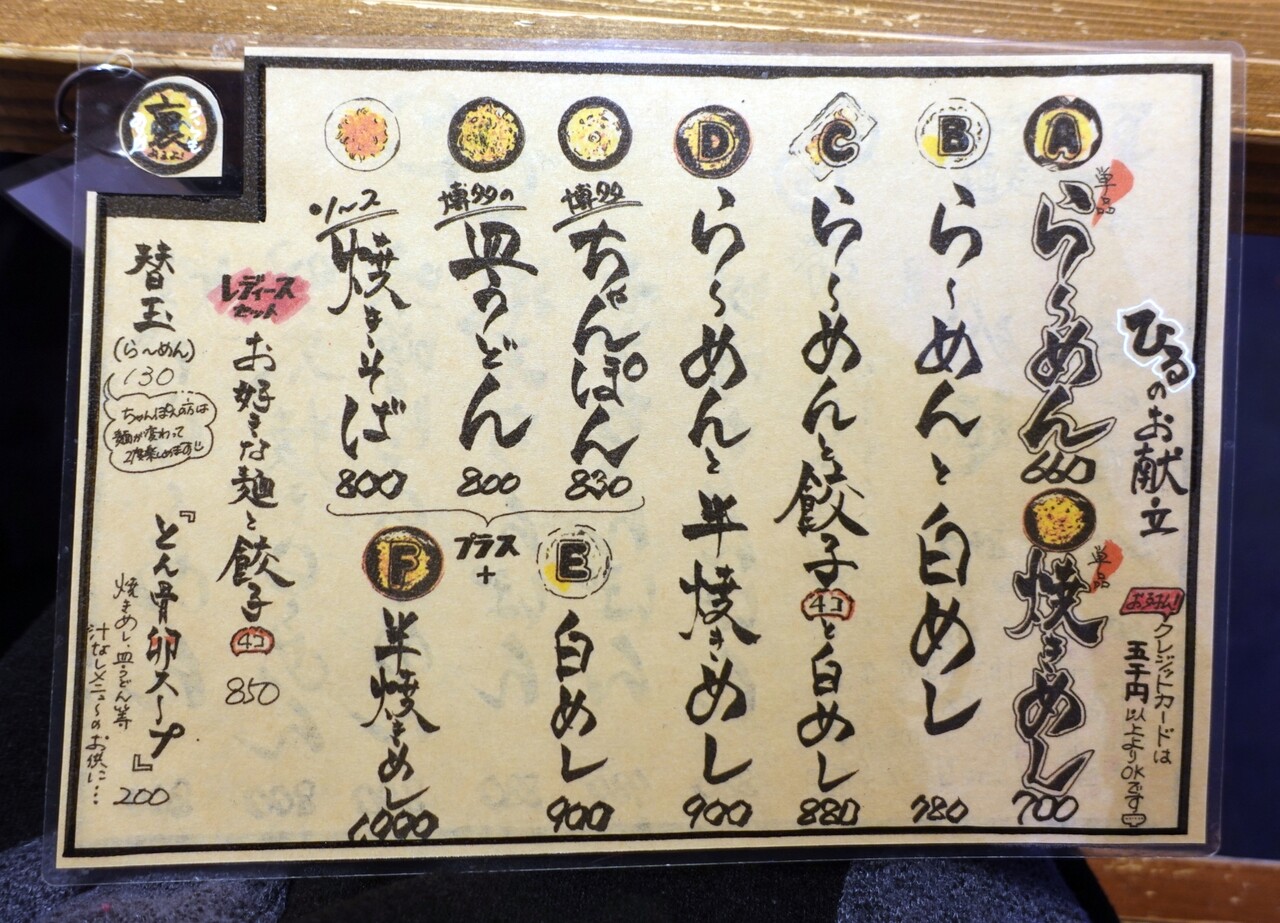 ひるのお献立
お手拭き!
クレジットカードは
五千円以上よりOKです
A
単品
らーめん
660
単品
焼きめし
700
B
らーめんと白めし
780
C
らーめんと餃子4コと白めし
880
D
らーめんと半焼きめし
900
博多
ちゃんぽん
830
博多の
皿うどん
800
ソース
焼きそば
800
プラス
+
E
白めし
900
F
半焼きめし
1,000
レディース
セット
お好きな麺と餃子4コ
850
裏
あるよ!
替玉
(ら〜めん)
130
ちゃんぽんの方は
麺が変わって
2度楽しめます
『とん骨卵スープ』
200
焼きめし・皿うどん等
汁なしメニューのお供に…